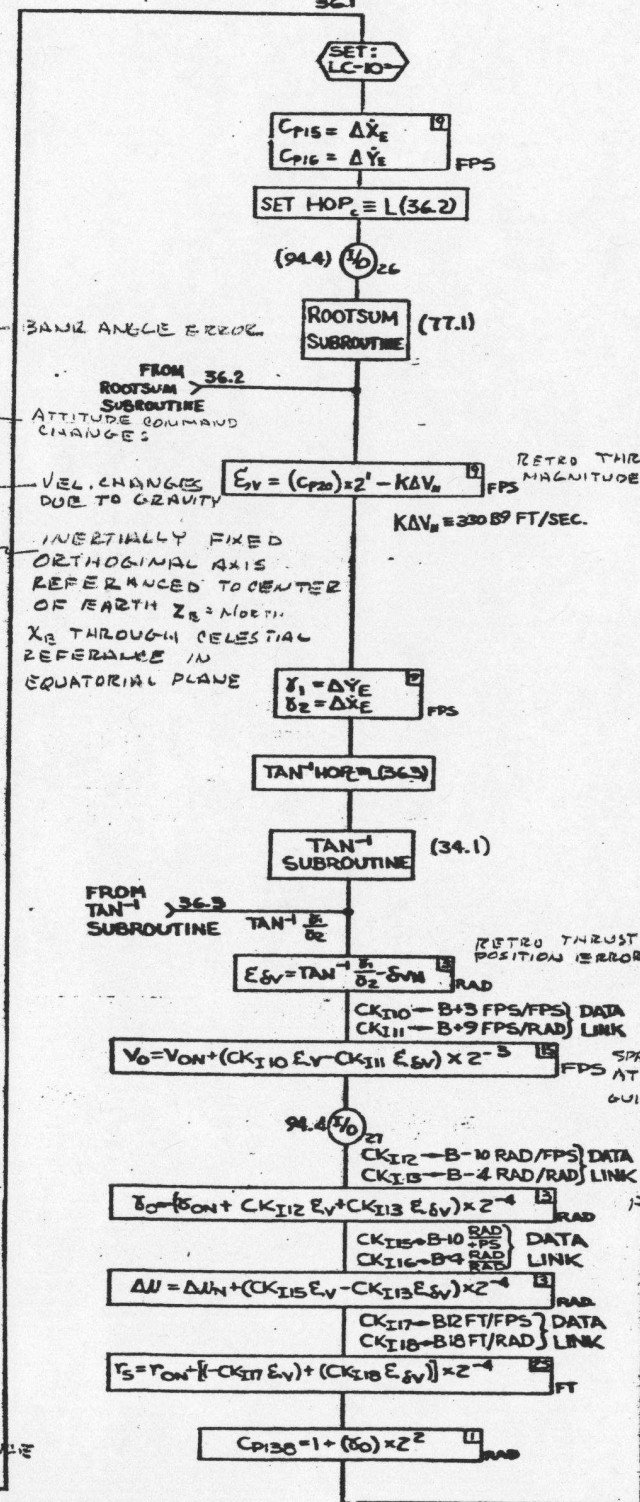 36.1
SET:
LC-10
C_P15 = ΔẊ_E 9
C_P16 = ΔẎ_E
FPS
SET HOP_c ≡ L(36.2)
(94.4) I/O 26
ROOTSUM
SUBROUTINE
(77.1)
BANK ANGLE ERROR
FROM
ROOTSUM
SUBROUTINE
36.2
ATTITUDE COMMAND
CHANGES
VEL. CHANGES
DUE TO GRAVITY
RETRO THR
MAGNITUDE
KΔV_N ≡ 330 B9 FT/SEC.
FPS
INERTIALLY FIXED
ORTHOGINAL AXIS
REFERANCED TO CENTER
OF EARTH Z_E = NORTH
X_E THROUGH CELESTIAL
REFERANCE IN
EQUATORIAL PLANE
γ_1 = ΔẎ_E
γ_2 = ΔẊ_E
FPS
TAN⁻¹
SUBROUTINE
(34.1)
FROM
TAN⁻¹
SUBROUTINE
36.3
RETRO THRUST
POSITION ERROR
RAD
CK_I10 → B+3 FPS/FPS } DATA
CK_I11 → B+9 FPS/RAD } LINK
V_O = V_ON + (CK_I10 ε_V - CK_I11 ε_δV) × 2⁻³ 15
FPS
AT
94.4 I/O 27
CK_I12 → B-10 RAD/FPS } DATA
CK_I13 → B-4 RAD/RAD } LINK
γ_O = (γ_ON + CK_I12 ε_V + CK_I13 ε_δV) × 2⁻⁴ 3
RAD
CK_I15 → B-10 RAD/FPS } DATA
CK_I16 → B-4 RAD/RAD } LINK
Δμ = Δμ_N + (CK_I15 ε_V - CK_I13 ε_δV) × 2⁻⁴ 3
RAD
CK_I17 → B12 FT/FPS } DATA
CK_I18 → B18 FT/RAD } LINK
r_S = r_ON + [(-CK_I17 ε_V) + (CK_I18 ε_δV)] × 2⁻⁴
FT
C_P138 = 1 + (γ_O) × 2² 1
RAD